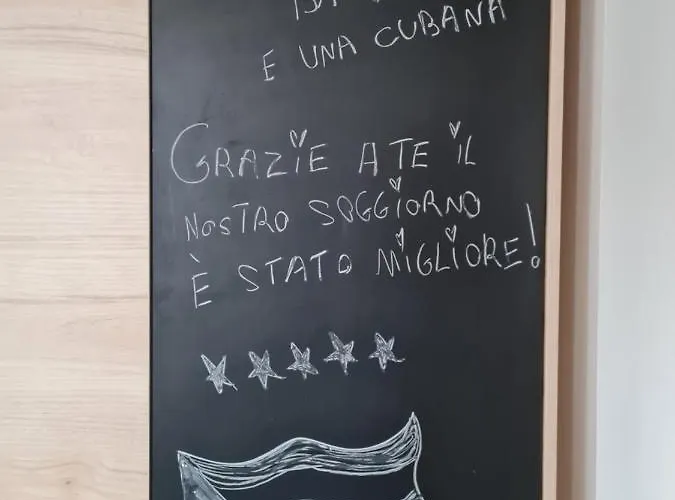 E UNA CUBANA
GRAZIE A TE IL
NOSTRO SOGGIORNO
È STATO MIGLIORE!